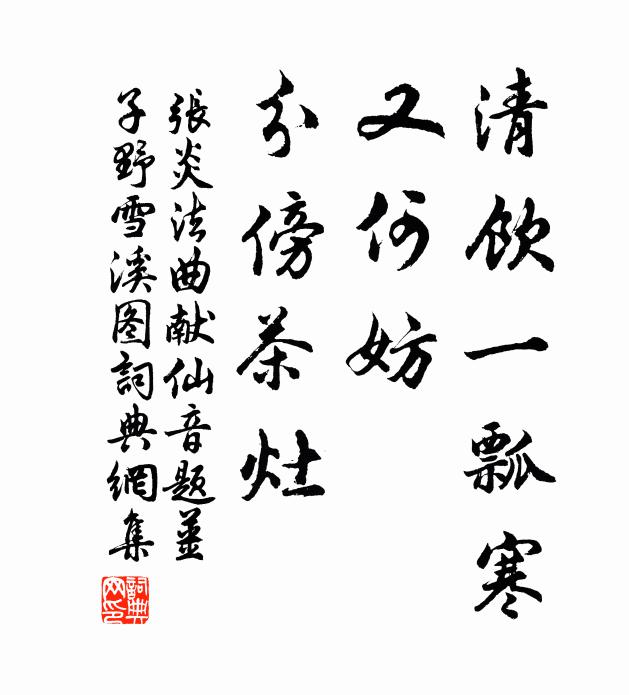 清飲一瓢寒
又何妨
分傍茶灶
張炎法曲献仙音題姜
子野雪溪图詞典網集
詞典网印